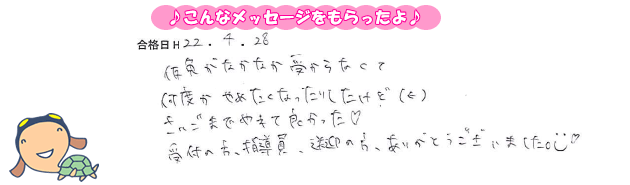 ♪こんなメッセージをもらったよ♪
合格日H22.4.28
仮免がなかなか受からなくて
何度かやめたくなったりしたけど(←)
さいごまでやれて良かった♡
受付の方、指導員、送迎の方、ありがとうございました。♡